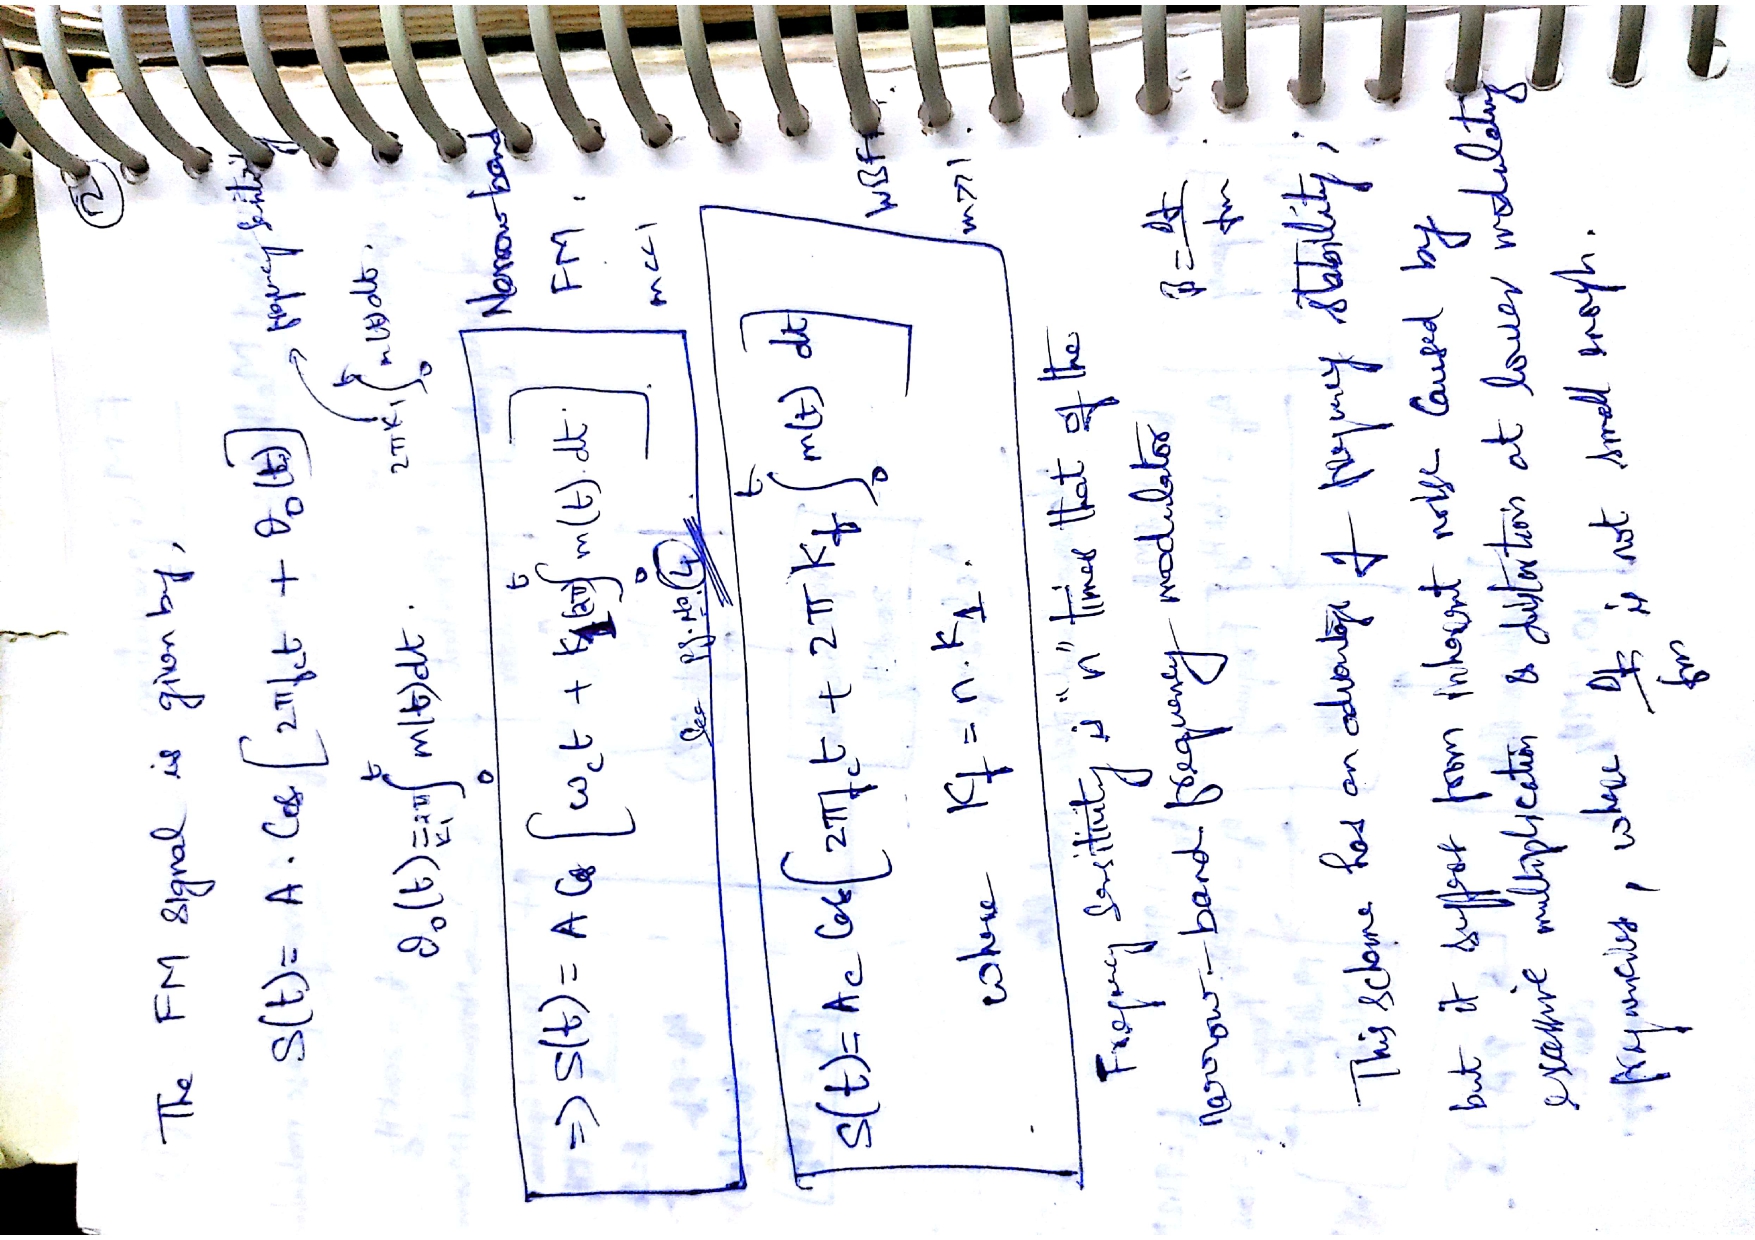 12
The FM signal is given by,
S(t) = A . Cos [2πfct + θ0(t)]
frequency
θ0(t) = 2π K1 ∫0^t m(t)dt.
2πK1 ∫0^t m(t)dt.
=> S(t) = A Cos [ωct + K1(2π) ∫0^t m(t).dt.]
Narrow-band
FM.
m<<1
See Pg.No. 4
S(t) = Ac Cos [2πfct + 2πKf ∫0^t m(t) dt]
where Kf = n.K1.
WBFM
m>>1
Frequency sensitivity is "n" times that of the
narrow-band frequency modulator
β = Δf/fm
This scheme has an advantage of frequency stability,
but it suffer from inherent noise caused by
excessive multiplication & distortion at lower modulating
frequencies, where Δf/fm is not small enough.